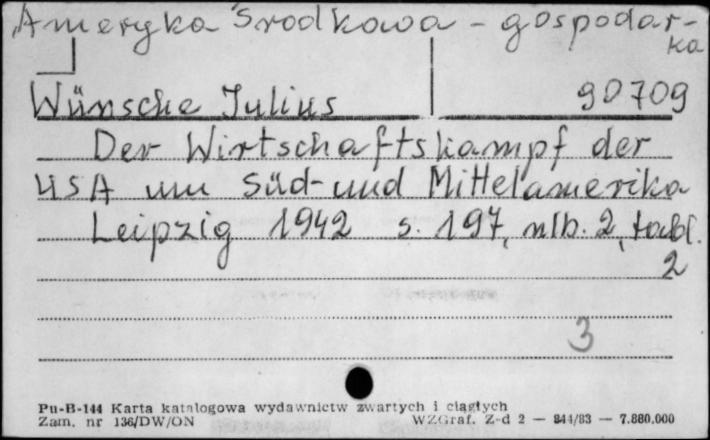 Ameryka Środkowa - gospodar-
ka
Wünsche Julius 90709
Der Wirtschaftskampf der
USA um Süd- und Mittelamerika
Leipzig 1942 s. 197, nlb. 2, tabl.
2
3
Pu-B-144 Karta katalogowa wydawnictw zwartych i ciągłych
Zam. nr 136/DW/ON WZGraf. Z-d 2 — 844/83 — 7.880.000